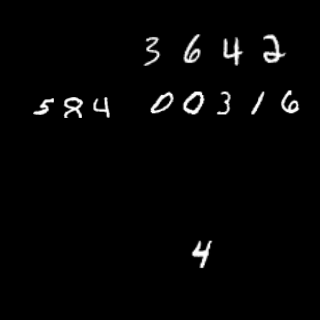 3642
584 00316
4